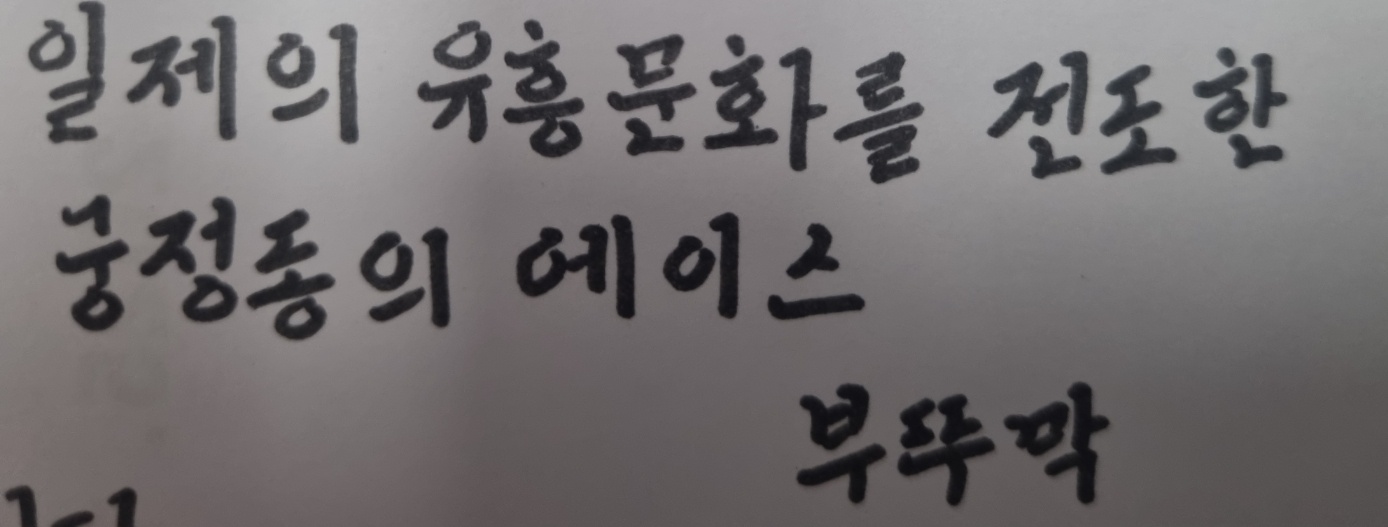 일제의 유흥문화를 전도한
궁정동의 에이스
부뚜막